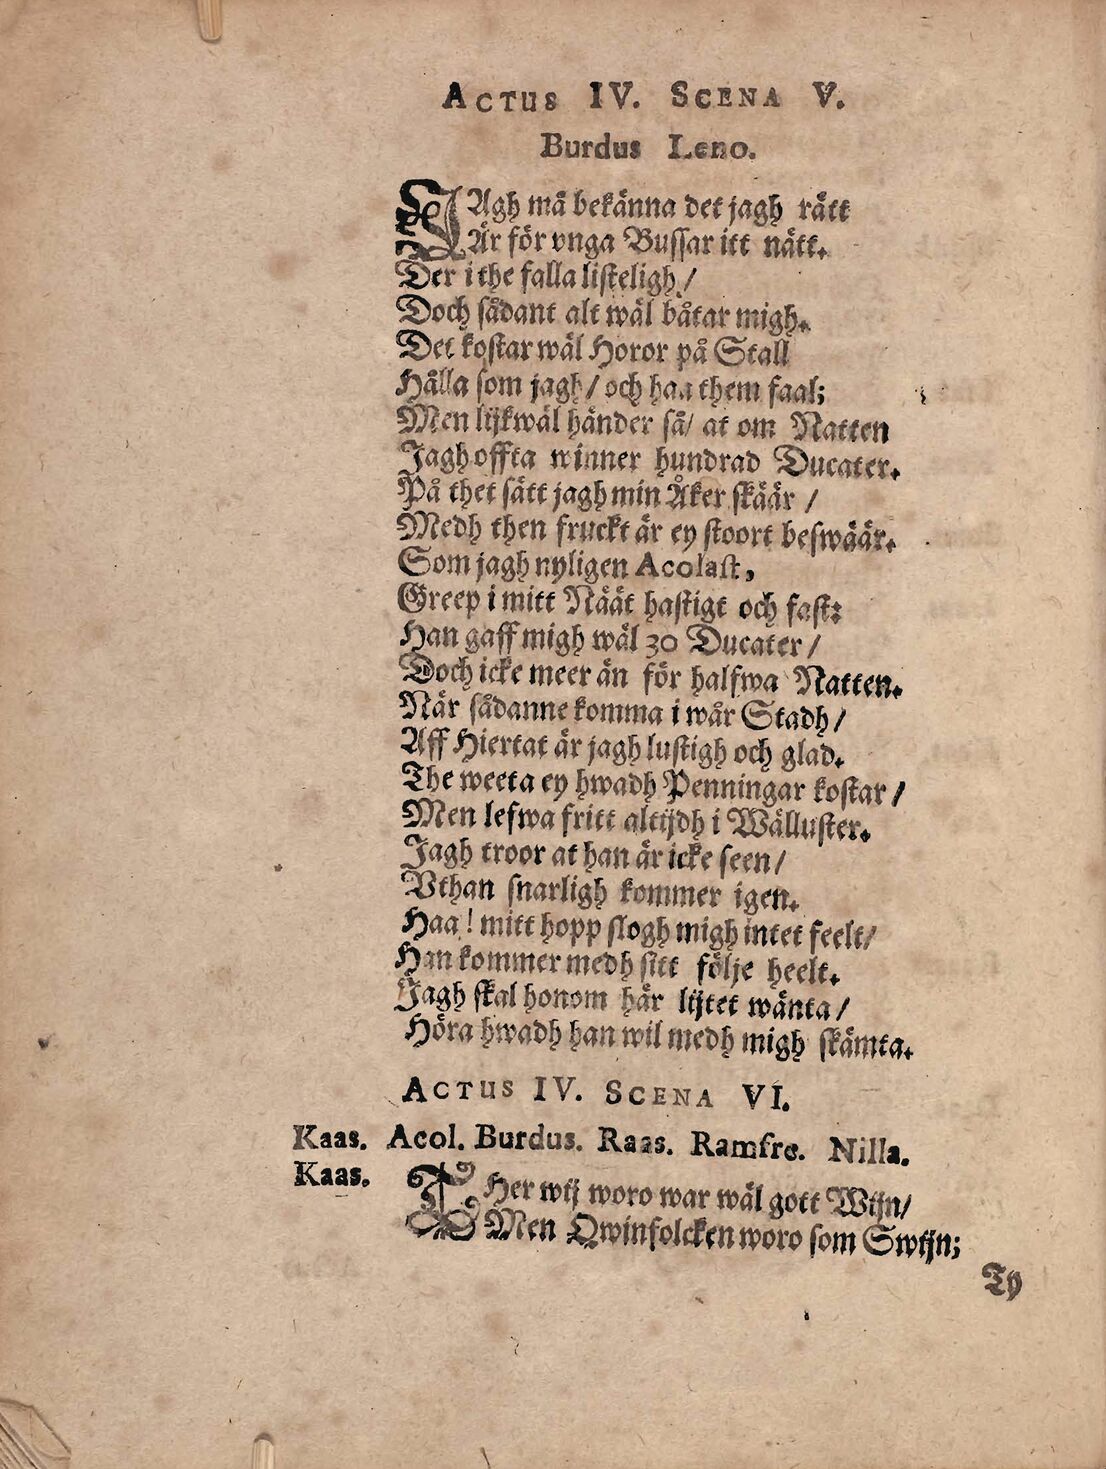 ACTUS IV. SCENA V.
Burdus Leno.
JAgh må bekänna det jagh rätt
Är för vnga Bussar itt nätt.
Der i the falla listeligh /
Doch sådant alt wäl båtar migh.
Det kostar wäl Horor på Stall
Hålla som jagh / och haa them faal;
Men lijkwäl händer så / at om Natten
Jagh offta winner hundrad Ducater.
På thet sätt jagh min Åker skäär /
Medh then fruckt är ey stoort beswäär.
Som jagh nyligen Acolast,
Greep i mitt Näät hastigt och fast:
Han gaff migh wäl 30 Ducater /
Doch icke meer än för halfwa Natten.
När sådanne komma i wår Stadh /
Aff Hiertat är jagh lustigh och glad.
The weeta ey hwadh Penningar kostar /
Men lefwa fritt altijdh i Wälluster.
Jagh troor at han är icke seen /
Vthan snarligh kommer igen.
Haa! mitt hopp slogh migh intet feelt /
Han kommer medh sitt följe heelt.
Jagh skal honom här lijtet wänta /
Höra hwadh han wil medh migh skämta.
ACTUS IV. SCENA VI.
Kaas. Acol. Burdus. Raas. Ramfre. Nilla.
Kaas. THer wij woro war wäl gott Wijn /
Men Qwinfolcken woro som Swijn;
Ty